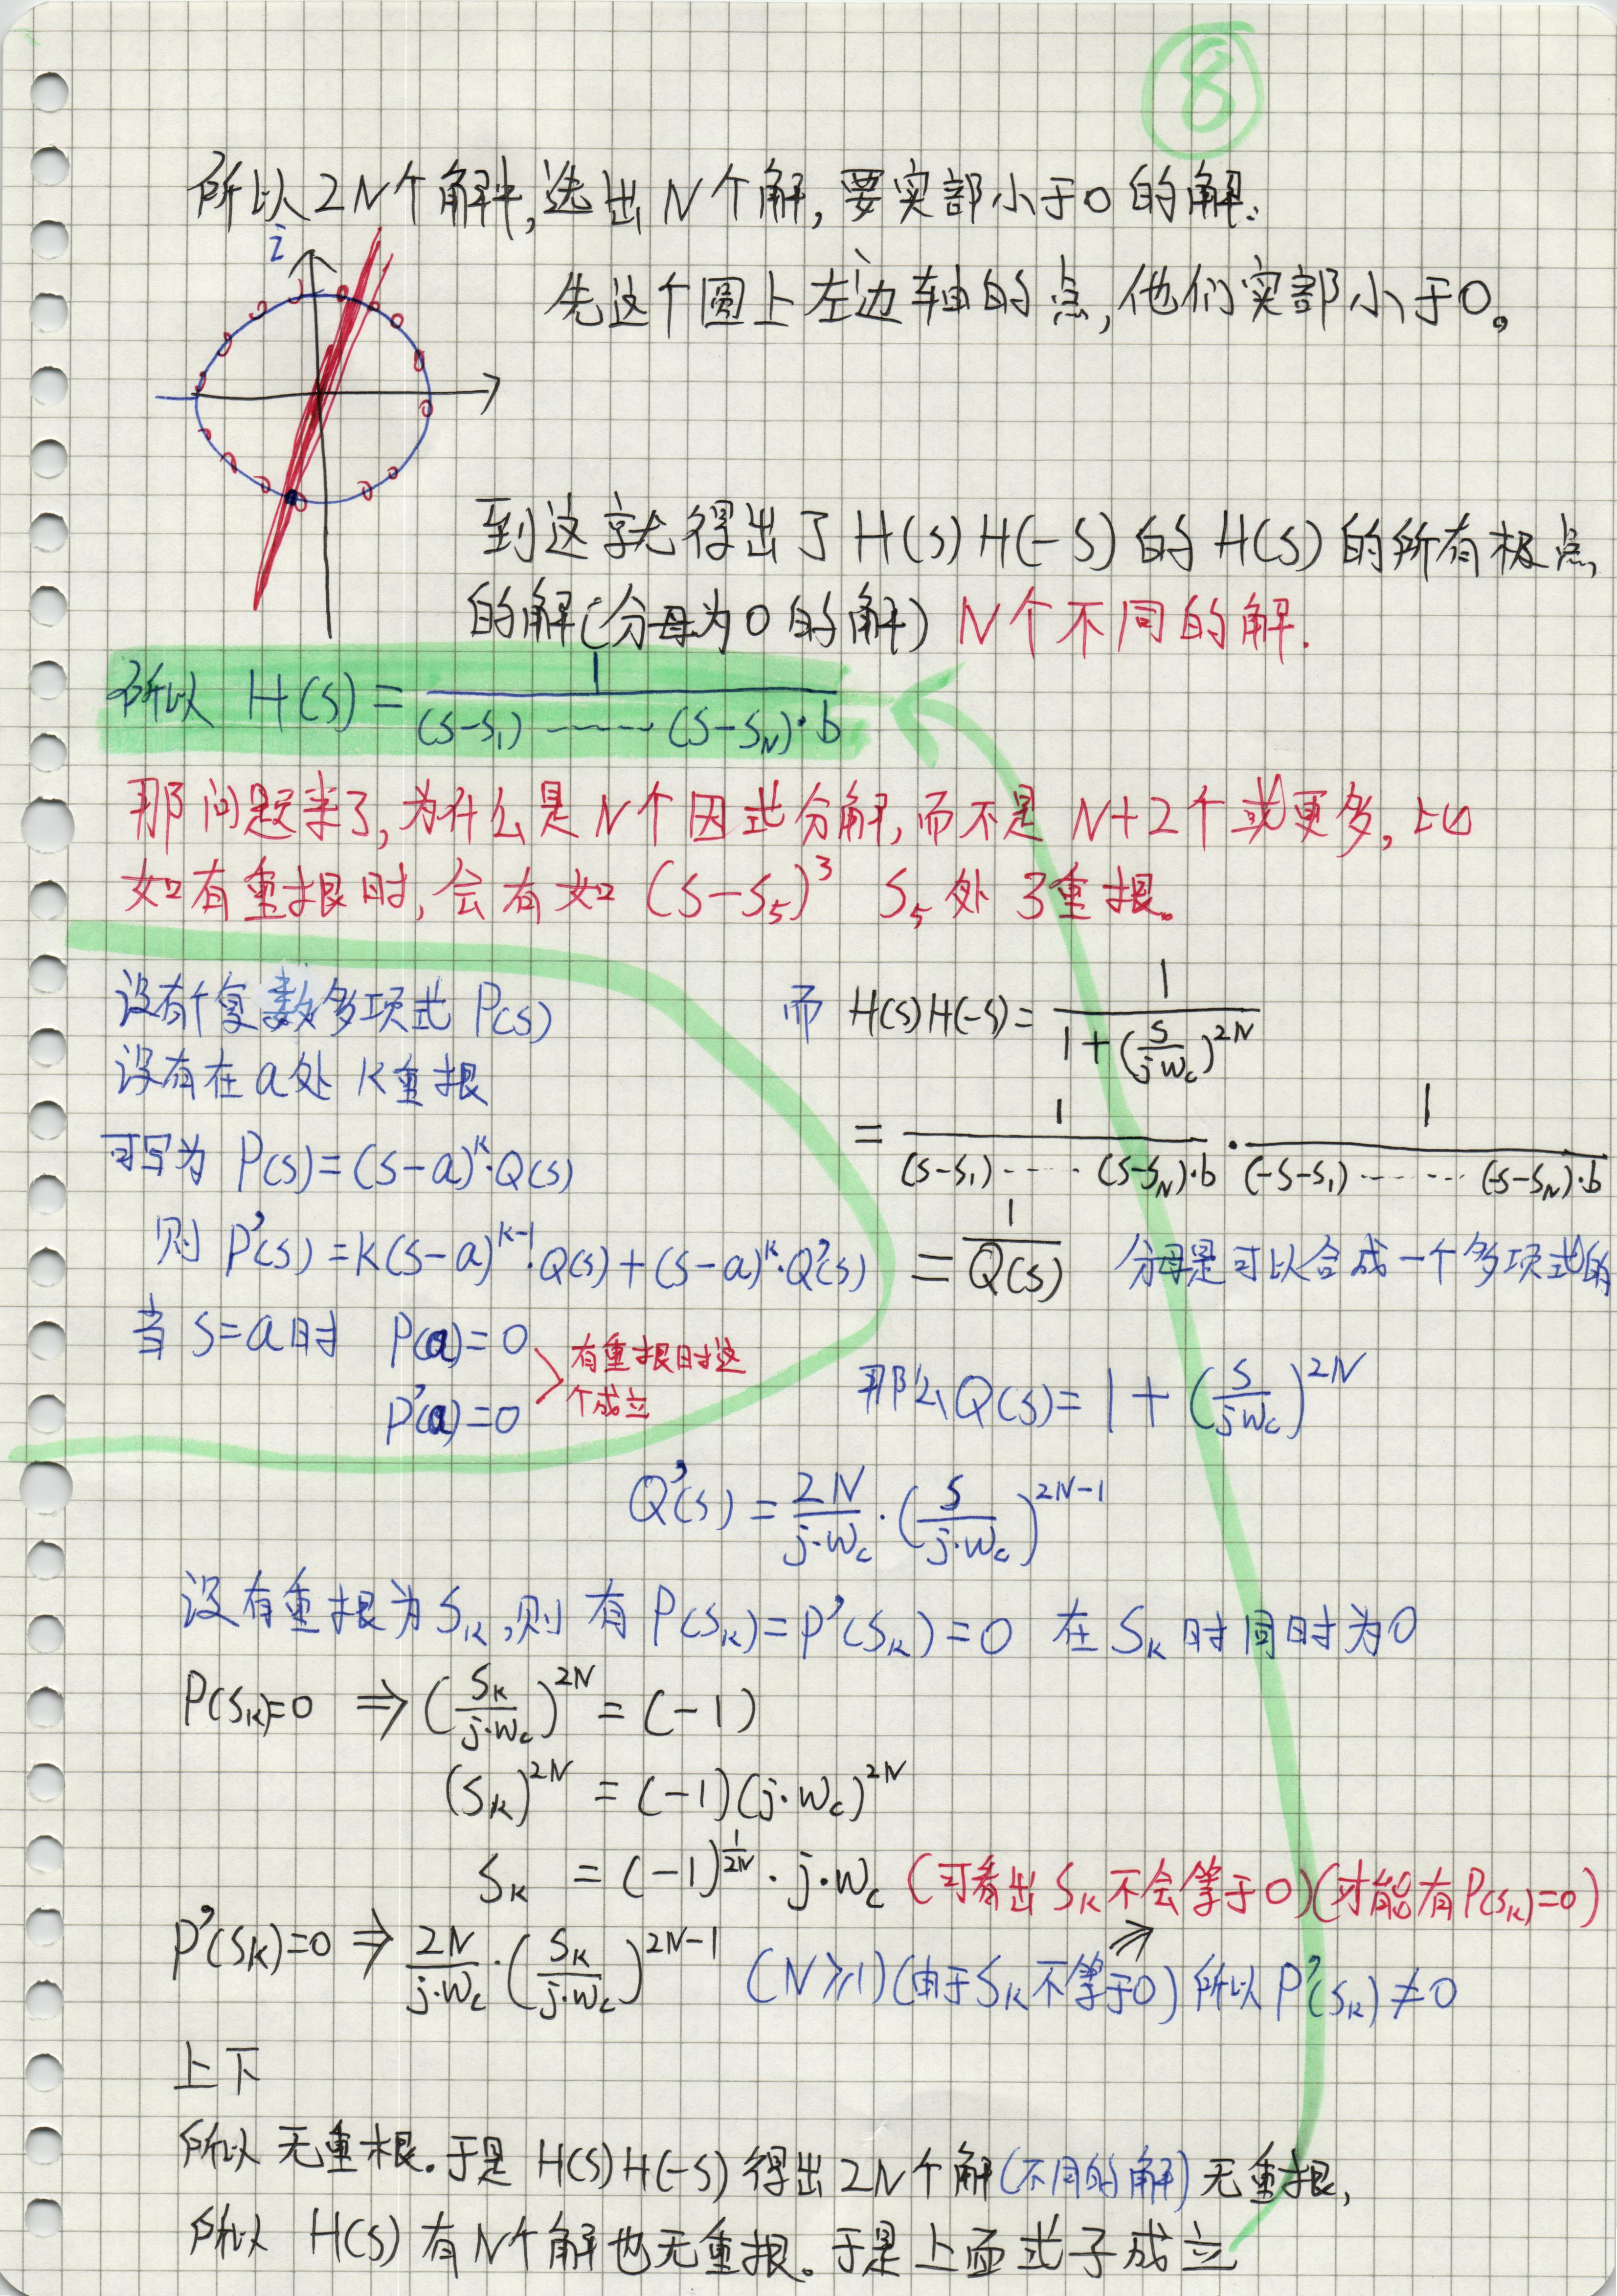 8
所以2N个解,选出N个解,要实部小于0的解.
i
先这个圆上左边轴的点,他们实部小于0。
到这就得出了H(s)H(-s)的H(s)的所有极点
的解(分母为0的解) N个不同的解.
所以 H(s) = 1/((s-s₁)……(s-s_N)·b)
那问题来了,为什么是N个因式分解,而不是N+2个或更多,比
如有重根时,会有如 (s-s₅)³ s₅处3重根。
设有个复数多项式 P(s)
设有在a处 K重根
可写为 P(s)=(s-a)^K·Q(s)
则 P'(s)=K(s-a)^(K-1)·Q(s)+(s-a)^K·Q'(s)
当 s=a时 P(a)=0
P'(a)=0
有重根时这
个成立
而 H(s)H(-s)= 1/(1+(s/(jw_c))^(2N))
= 1/((s-s₁)……(s-s_N)·b) · 1/((-s-s₁)……(-s-s_N)·b)
= 1/Q(s) 分母是可以合成一个多项式的
那么Q(s)= 1+(s/(jw_c))^(2N)
Q'(s) = 2N/(j·w_c)·(s/(j·w_c))^(2N-1)
设有重根为S_k,则有P(S_k)=P'(S_k)=0 在S_k时同时为0
P(S_k)=0 ⇒ (S_k/(j·w_c))^(2N) = (-1)
(S_k)^(2N) = (-1)(j·w_c)^(2N)
S_k = (-1)^(1/2N)·j·w_c (可看出S_k不会等于0)(才能有P(S_k)=0)
P'(S_k)=0 ⇒ 2N/(j·w_c)·(S_k/(j·w_c))^(2N-1) (N≥1)(由于S_k不等于0) 所以P'(S_k)≠0
上下
所以 无重根。于是 H(s)H(-s) 得出2N个解(不同的解)无重根,
所以 H(s)有N个解也无重根。于是上面式子成立